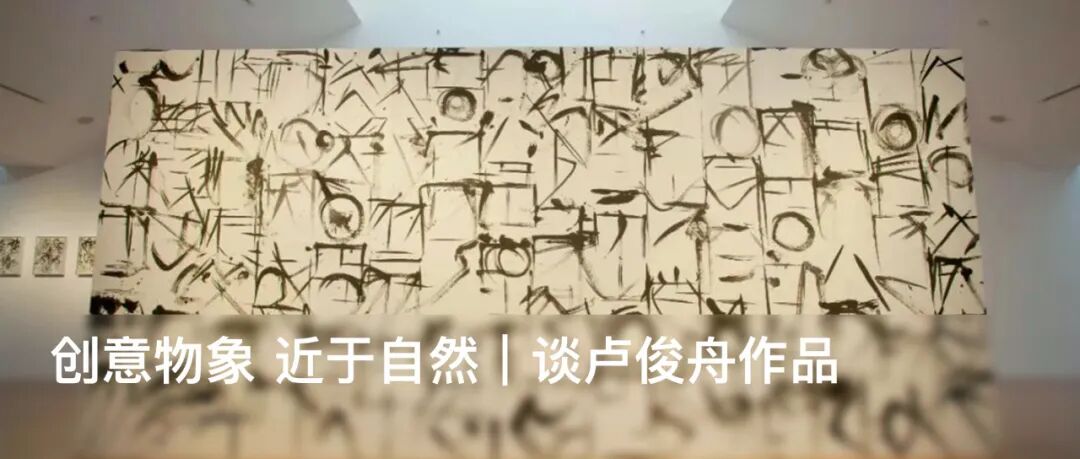 创意物象 近于自然｜谈卢俊舟作品